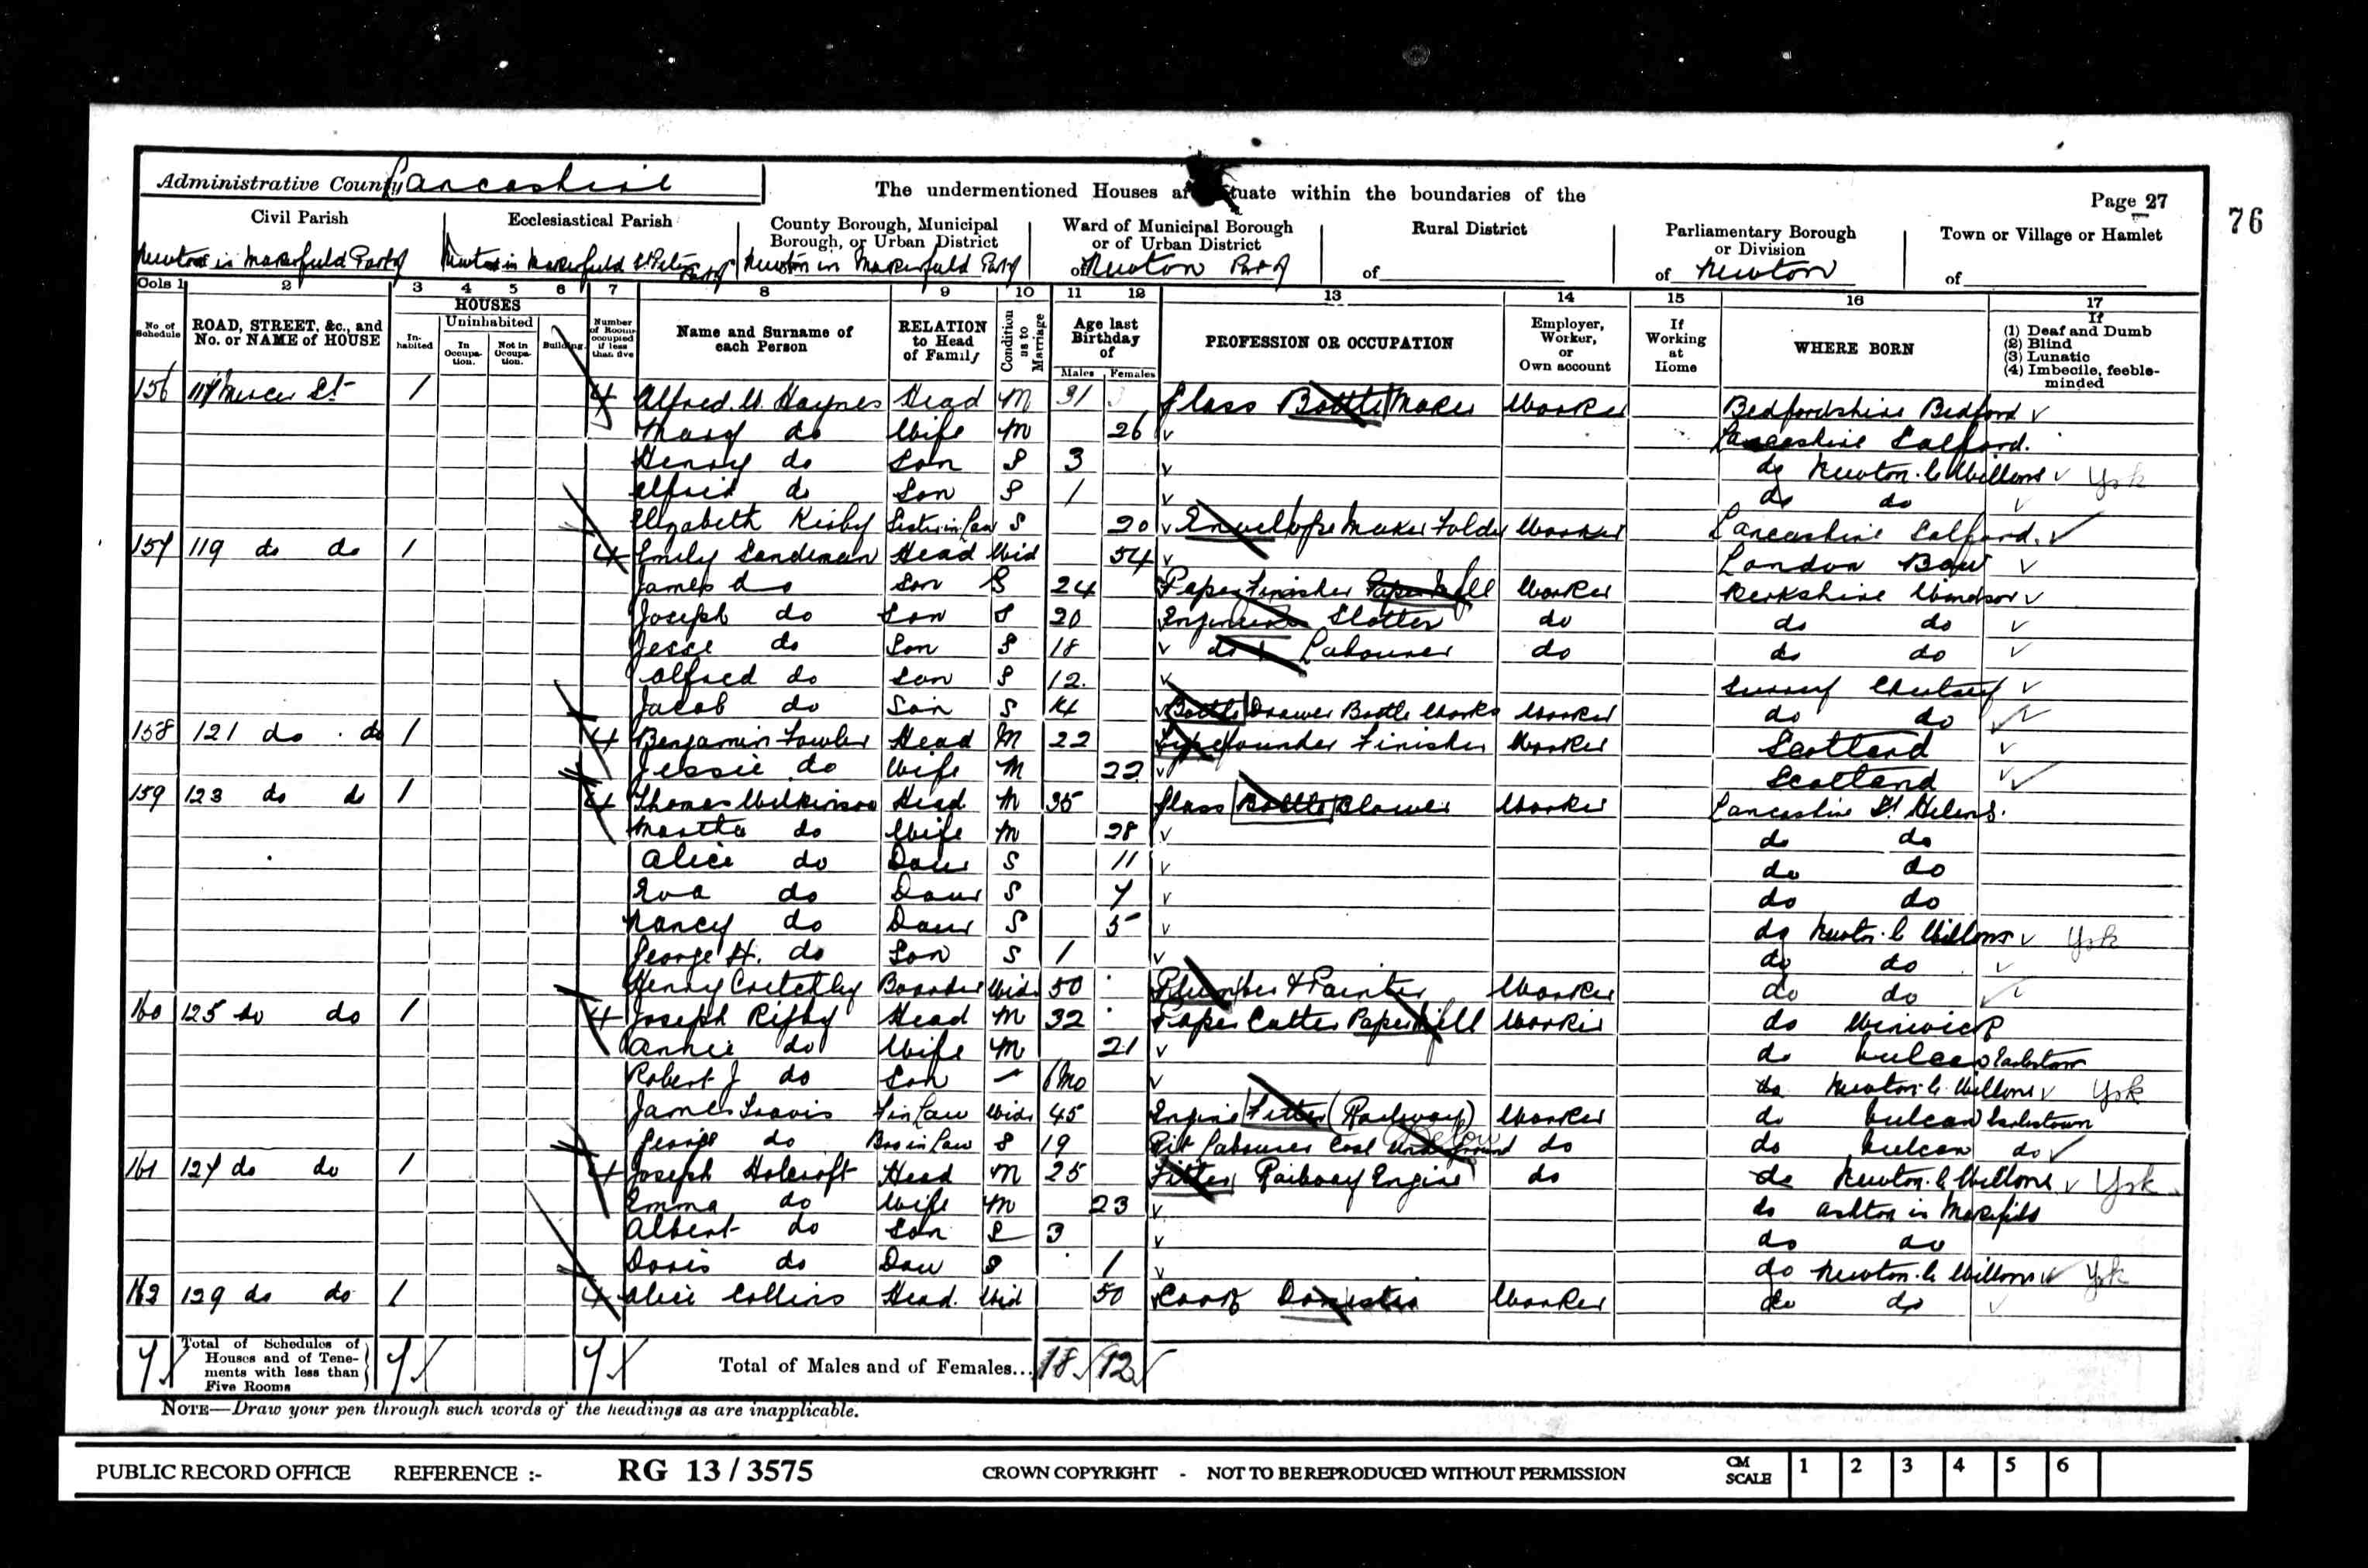 Administrative County Lancashire
The undermentioned Houses are situate within the boundaries of the
Page 27
76
Civil Parish
Ecclesiastical Parish
County Borough, Municipal Borough, or Urban District
Ward of Municipal Borough or of Urban District
Rural District
Parliamentary Borough or Division
Town or Village or Hamlet
Newton in Makerfield Part of
Newton in Makerfield St Peter Part of
Newton in Makerfield Part of
of Newton Part of
of
of Newton
of
Cols 1 2 3 4 5 6 7 8 9 10 11 12 13 14 15 16 17
No. of Schedule
ROAD, STREET, &c., and No. or NAME of HOUSE
HOUSES
Inhabited
Uninhabited
In Occupation.
Not in Occupation.
Building.
Number of Rooms occupied if less than five
Name and Surname of each Person
RELATION to Head of Family
Condition as to Marriage
Age last Birthday of
Males Females
PROFESSION OR OCCUPATION
Employer, Worker, or Own account
If Working at Home
WHERE BORN
If
(1) Deaf and Dumb
(2) Blind
(3) Lunatic
(4) Imbecile, feeble-minded
156 117 Mercer St 1 4 Alfred. W. Haynes Head M 31 Glass Bottle Maker Worker Bedfordshire Bedford
Mary do Wife M 26 Lancashire Salford.
Henry do Son S 3 do Newton. le Willows York
Alfred do Son S 1 do do
Elizabeth Kirby Sister in Law S 20 Envelope Maker Folder Worker Lancashire Salford.
157 119 do do 1 4 Emily Sandeman Head Wid 54 London Bow
James do Son S 24 Paper Finisher Paper Mill Worker Berkshire Windsor
Joseph do Son S 20 Engineers Slotter do do do
Jesse do Son S 18 do Labourer do do do
Alfred do Son S 12. Surrey Chertsey
Jacob do Son S 14 Bottle Drawer Bottle Works Worker do do
158 121 do do 1 4 Benjamin Fowler Head M 22 Typefounder Finisher Worker Scotland
Jessie do Wife M 22 Scotland
159 123 do do 1 4 Thomas Wilkinson Head M 35 Glass Bottle Blower Worker Lancashire St Helens.
Martha do Wife M 28 do do
Alice do Daur S 11 do do
Eva do Daur S 7 do do
Nancy do Daur S 5 do Newton. le Willows York
George H. do Son S 1 do do
Henry Critchley Boarder Wid 50 Plumber & Painter Worker do do
160 125 do do 1 4 Joseph Rigby Head M 32 Paper Cutter Paper Mill Worker do Winwick
Annie do Wife M 21 do Vulcan Earlestown
Robert J do Son 6mo do Newton. le. Willows York
James Travis F in Law Wid 45 Engine Fitter (Railway) Worker do Vulcan Earlestown
George do Bro in Law S 19 Pit Labourer Coal Underground Below do do Vulcan do
161 127 do do 1 4 Joseph Holcroft Head M 25 Fitter Railway Engine do do Newton. le Willows York
Emma do Wife M 23 do Ashton in Makerfield
Albert do Son S 3 do do
Doris do Dau S 1 do Newton. le Willows York
162 129 do do 1 4 Alice Collins Head. Wid 50 Cook Domestic Worker do do
7 Total of Schedules of Houses and of Tenements with less than Five Rooms 7 7 Total of Males and of Females... 18 12
NOTE—Draw your pen through such words of the headings as are inapplicable.
PUBLIC RECORD OFFICE REFERENCE :- RG 13 / 3575 CROWN COPYRIGHT - NOT TO BE REPRODUCED WITHOUT PERMISSION CM SCALE 1 2 3 4 5 6